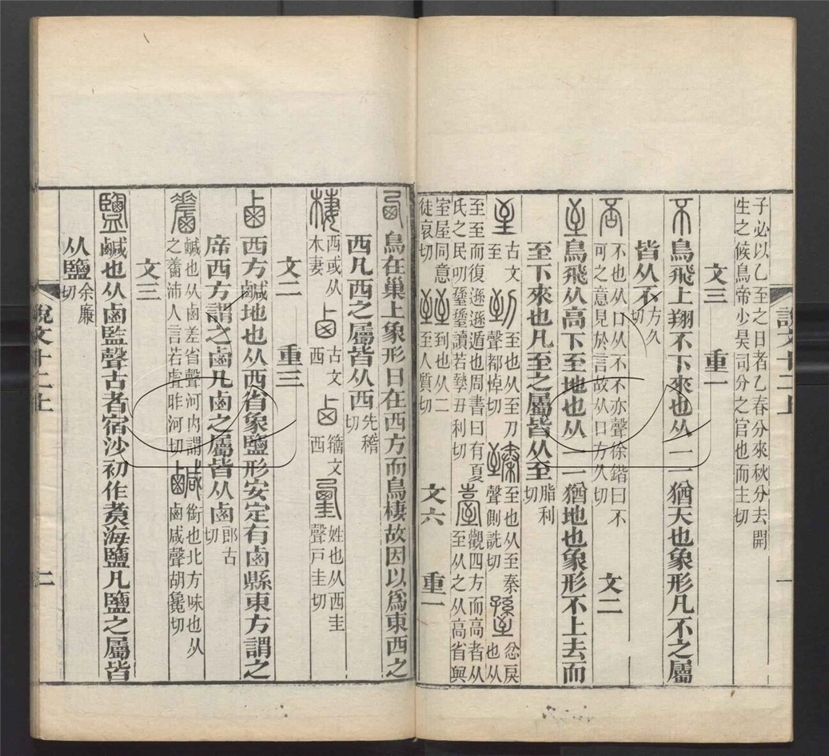 說文十二上 一
子必以乙至之日者乙春分來秋分去開
生之候鳥帝少昊司分之官也而主切
文三 重一
不 鳥飛上翔不下來也从一一猶天也象形凡不之屬
皆从不 方久切
否 不也从口从不不亦聲徐鍇曰不可之意見於言故从口方久切 文二
至 鳥飛从高下至地也从一一猶地也象形不上去而
至下來也凡至之屬皆从至 脂利切
古文至 到 至也从至刀聲都悼切 臻 至也从至秦聲側詵切 𦥎 忿戾也从
至至而復遜遜遁也周書曰有夏氏之民叨𦥎𦥎讀若摯丑利切 臺 觀四方而高者从至从之从高省與
室屋同意徒哀切 臸 到也从二至人質切 文六 重一
西 鳥在巢上象形日在西方而鳥棲故因以爲東西之
西凡西之屬皆从西 先稽切
棲 西或从木妻 古文西 籀文西 𡐪 姓也从西圭聲戶圭切
文二 重三
鹵 西方鹹地也从西省象鹽形安定有鹵縣東方謂之
㡿西方謂之鹵凡鹵之屬皆从鹵 郎古切
䴾 鹹也从鹵差省聲河内謂之䴾沛人言若虘昨河切 鹹 銜也北方味也从鹵咸聲胡毚切
文三
鹽 鹹也从鹵監聲古者宿沙初作煑海鹽凡鹽之屬皆
从鹽 余廉切
說文十二上 二